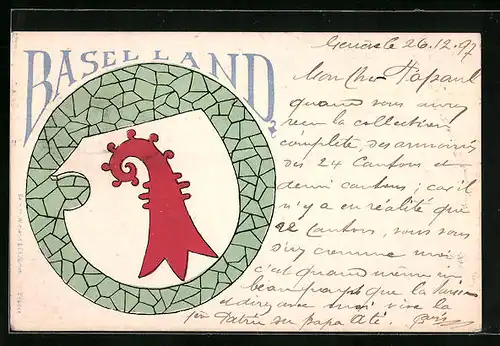 BASELLAND
Genève le 26.12.97
Mon Cher Papaul
quand vous aurez
reçu la collection
complète, des armoiries
des 24 Cantons et
demi cantons; car il
n'y a en réalité que
22 Cantons, vous vous
direz comme moi
c'est quand même un
beau pays que la Suisse
et direz avec moi vive la
Patrie du papa